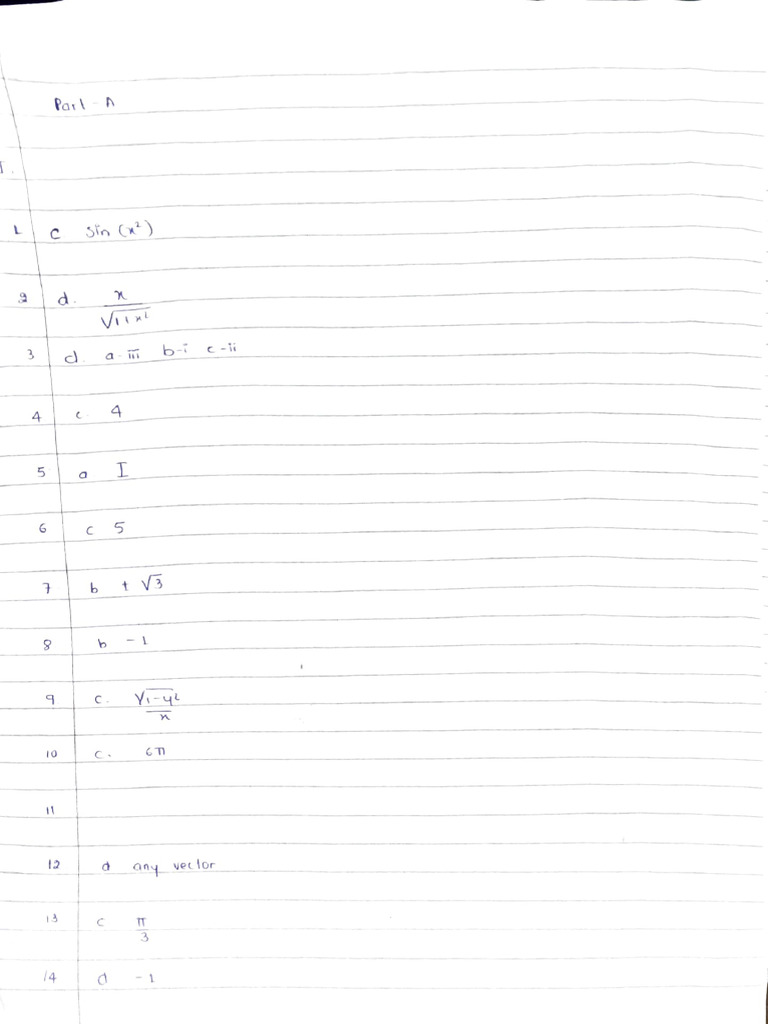 Part - A
1.
1 c sin (x²)
2 d. x
√1+x²
3 d. a-iii b-i c-ii
4 c. 4
5 a I
6 c 5
7 b + √3
8 b -1
9 c. √1-y²
x
10 c. 6π
11
12 d any vector
13 c π
3
14 d -1